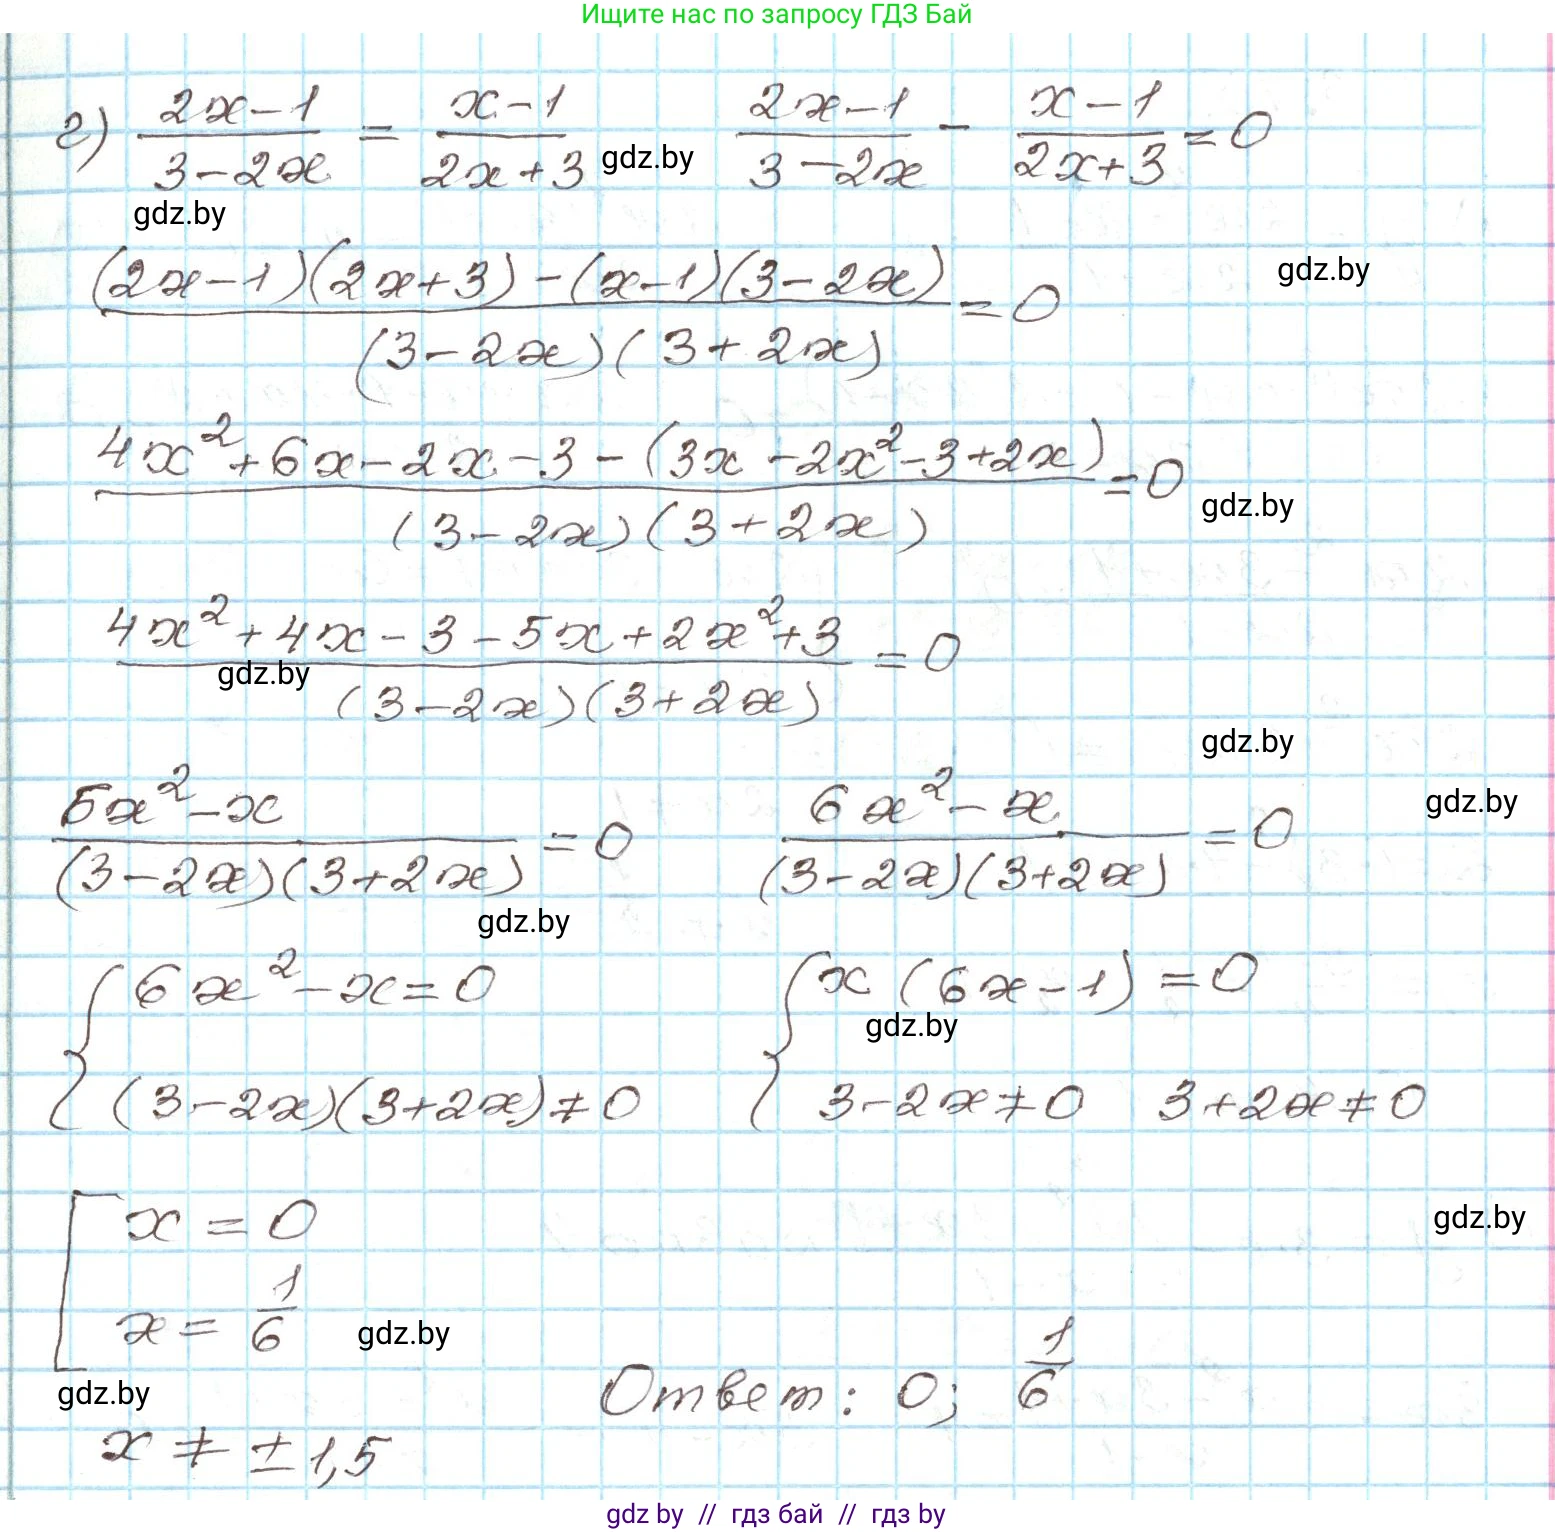 Ищите нас по запросу ГДЗ Бай
г) (2x-1)/(3-2x) = (x-1)/(2x+3) gdz.by (2x-1)/(3-2x) - (x-1)/(2x+3) = 0
gdz.by
((2x-1)(2x+3)-(x-1)(3-2x))/((3-2x)(3+2x)) = 0 gdz.by
(4x²+6x-2x-3-(3x-2x²-3+2x))/((3-2x)(3+2x)) = 0 gdz.by
(4x²+4x-3-5x+2x²+3)/((3-2x)(3+2x)) = 0
gdz.by
gdz.by
(6x²-x)/((3-2x)(3+2x)) = 0 (6x²-x)/((3-2x)(3+2x)) = 0 gdz.by
gdz.by
{ 6x²-x=0 { x(6x-1)=0
gdz.by
(3-2x)(3+2x)≠0 3-2x≠0 3+2x≠0
[ x=0 gdz.by
x=1/6 gdz.by
gdz.by Ответ: 0; 1/6
x ≠ ±1,5
gdz by // гдз бай // гдз by